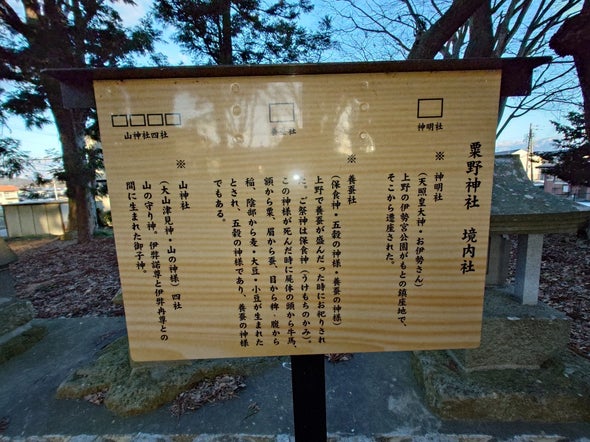 粟野神社　境内社
神明社
養蚕社
山神社四社
※　神明社
（天照皇大神・お伊勢さん）
上野の伊勢宮公園がもとの鎮座地で、
そこから遷座された。
※　養蚕社
（保食神・五穀の神様・養蚕の神様）
上野で養蚕が盛んだった時にお祀りされ
た。ご祭神は保食神（うけもちのかみ）。
この神様が死んだ時に屍体の頭から牛馬、
額から粟、眉から蚕、目から稗、腹から
稲、陰部から麦・大豆・小豆が生まれた
とされ、五穀の神様であり、養蚕の神様
でもある。
※　山神社
（大山津見神・山の神様）四社
山の守り神。伊弉諾尊と伊弉冉尊との
間に生まれた御子神。